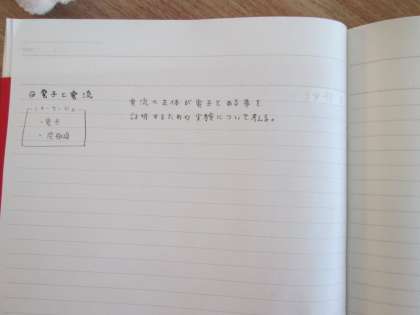 電子と電流
キーワード
・電子
電流の正体が電子である事を
証明するための実験について考える。